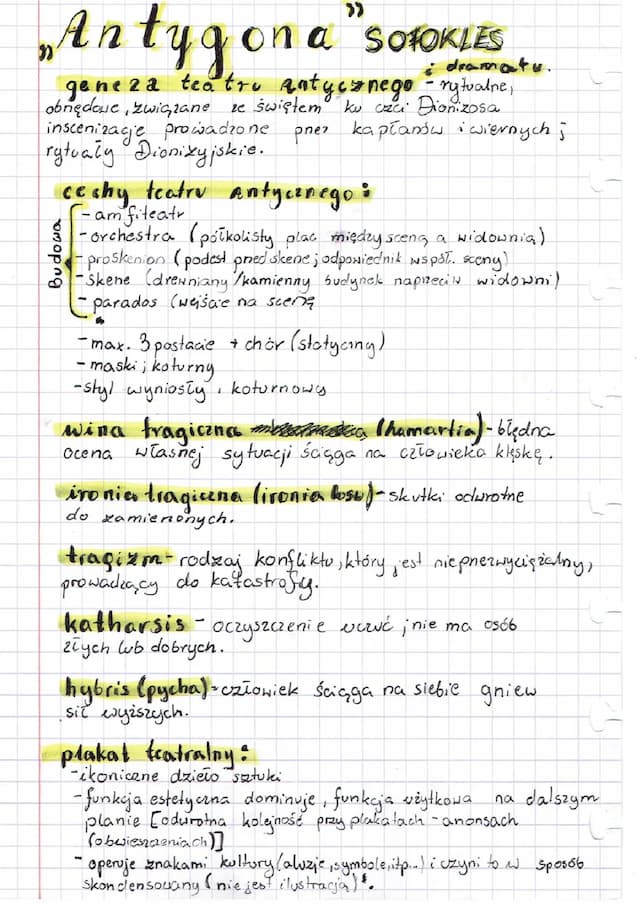 „Antygona” SOFOKLES
geneza teatru antycznego i dramatu. - rytualne,
obrzędowe, związane ze świętem ku czci Dionizosa
inscenizacje prowadzone przez kapłanów i wiernych ;
rytuały Dionizyjskie.
cechy teatru antycznego:
Budowa
- amfiteatr
- orchestra (półkolisty plac między sceną a widownią)
- proskenion (podest przed skene ; odpowiednik współ. sceny)
- skene (drewniany/kamienny budynek naprzeciw widowni)
- parados (wejście na scenę
- max. 3 postacie + chór (statyczny)
- maski ; koturny
- styl wyniosły, koturnowy
wina tragiczna (hamartia) - błędna
ocena własnej sytuacji ściąga na człowieka klęskę.
ironia tragiczna (ironia losu) - skutki odwrotne
do zamierzonych.
tragizm - rodzaj konfliktu, który jest nieprzezwyciężalny,
prowadzący do katastrofy.
katharsis - oczyszczenie uczuć ; nie ma osób
złych lub dobrych.
hybris (pycha) - człowiek ściąga na siebie gniew
sił wyższych.
plakat teatralny:
- ikoniczne dzieło sztuki
- funkcja estetyczna dominuje, funkcja użytkowa na dalszym
planie [odwrotna kolejność przy plakatach - anonsach
(obwieszczeniach)]
- operuje znakami kultury (aluzje, symbole, itp...) i czyni to w sposób
skondensowany (nie jest ilustracją).